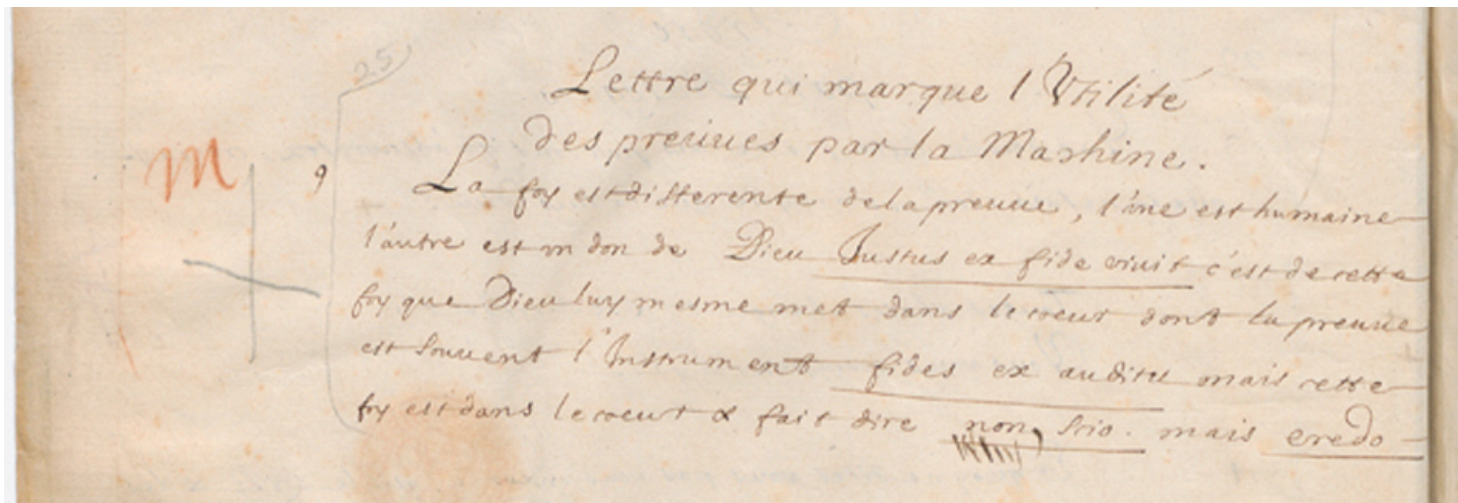 25
Lettre qui marque l'Utilité
des preuues par la Machine.
M
9
La foy est differente de la preuue, l'une est humaine
l'autre est un don de Dieu Justus ex fide viuit c'est de cette
foy que Dieu luy mesme met dans le coeur dont la preuue
est souuent l'Instrument fides ex auditu mais cette
foy est dans le coeur & fait dire non scio. mais credo